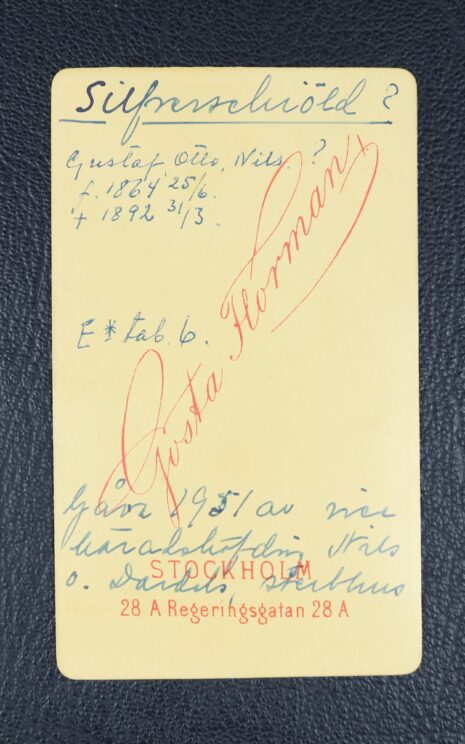 Silfverschiöld ?
Gustaf Otto, Nils. ?
f. 1864 25/6.
† 1892 31/3.
E * tab. 6.
Gösta Florman
Gåva 1951 av vice
häradshöfding Nils
v. Dardels, sterbhus
STOCKHOLM
28 A Regeringsgatan 28 A